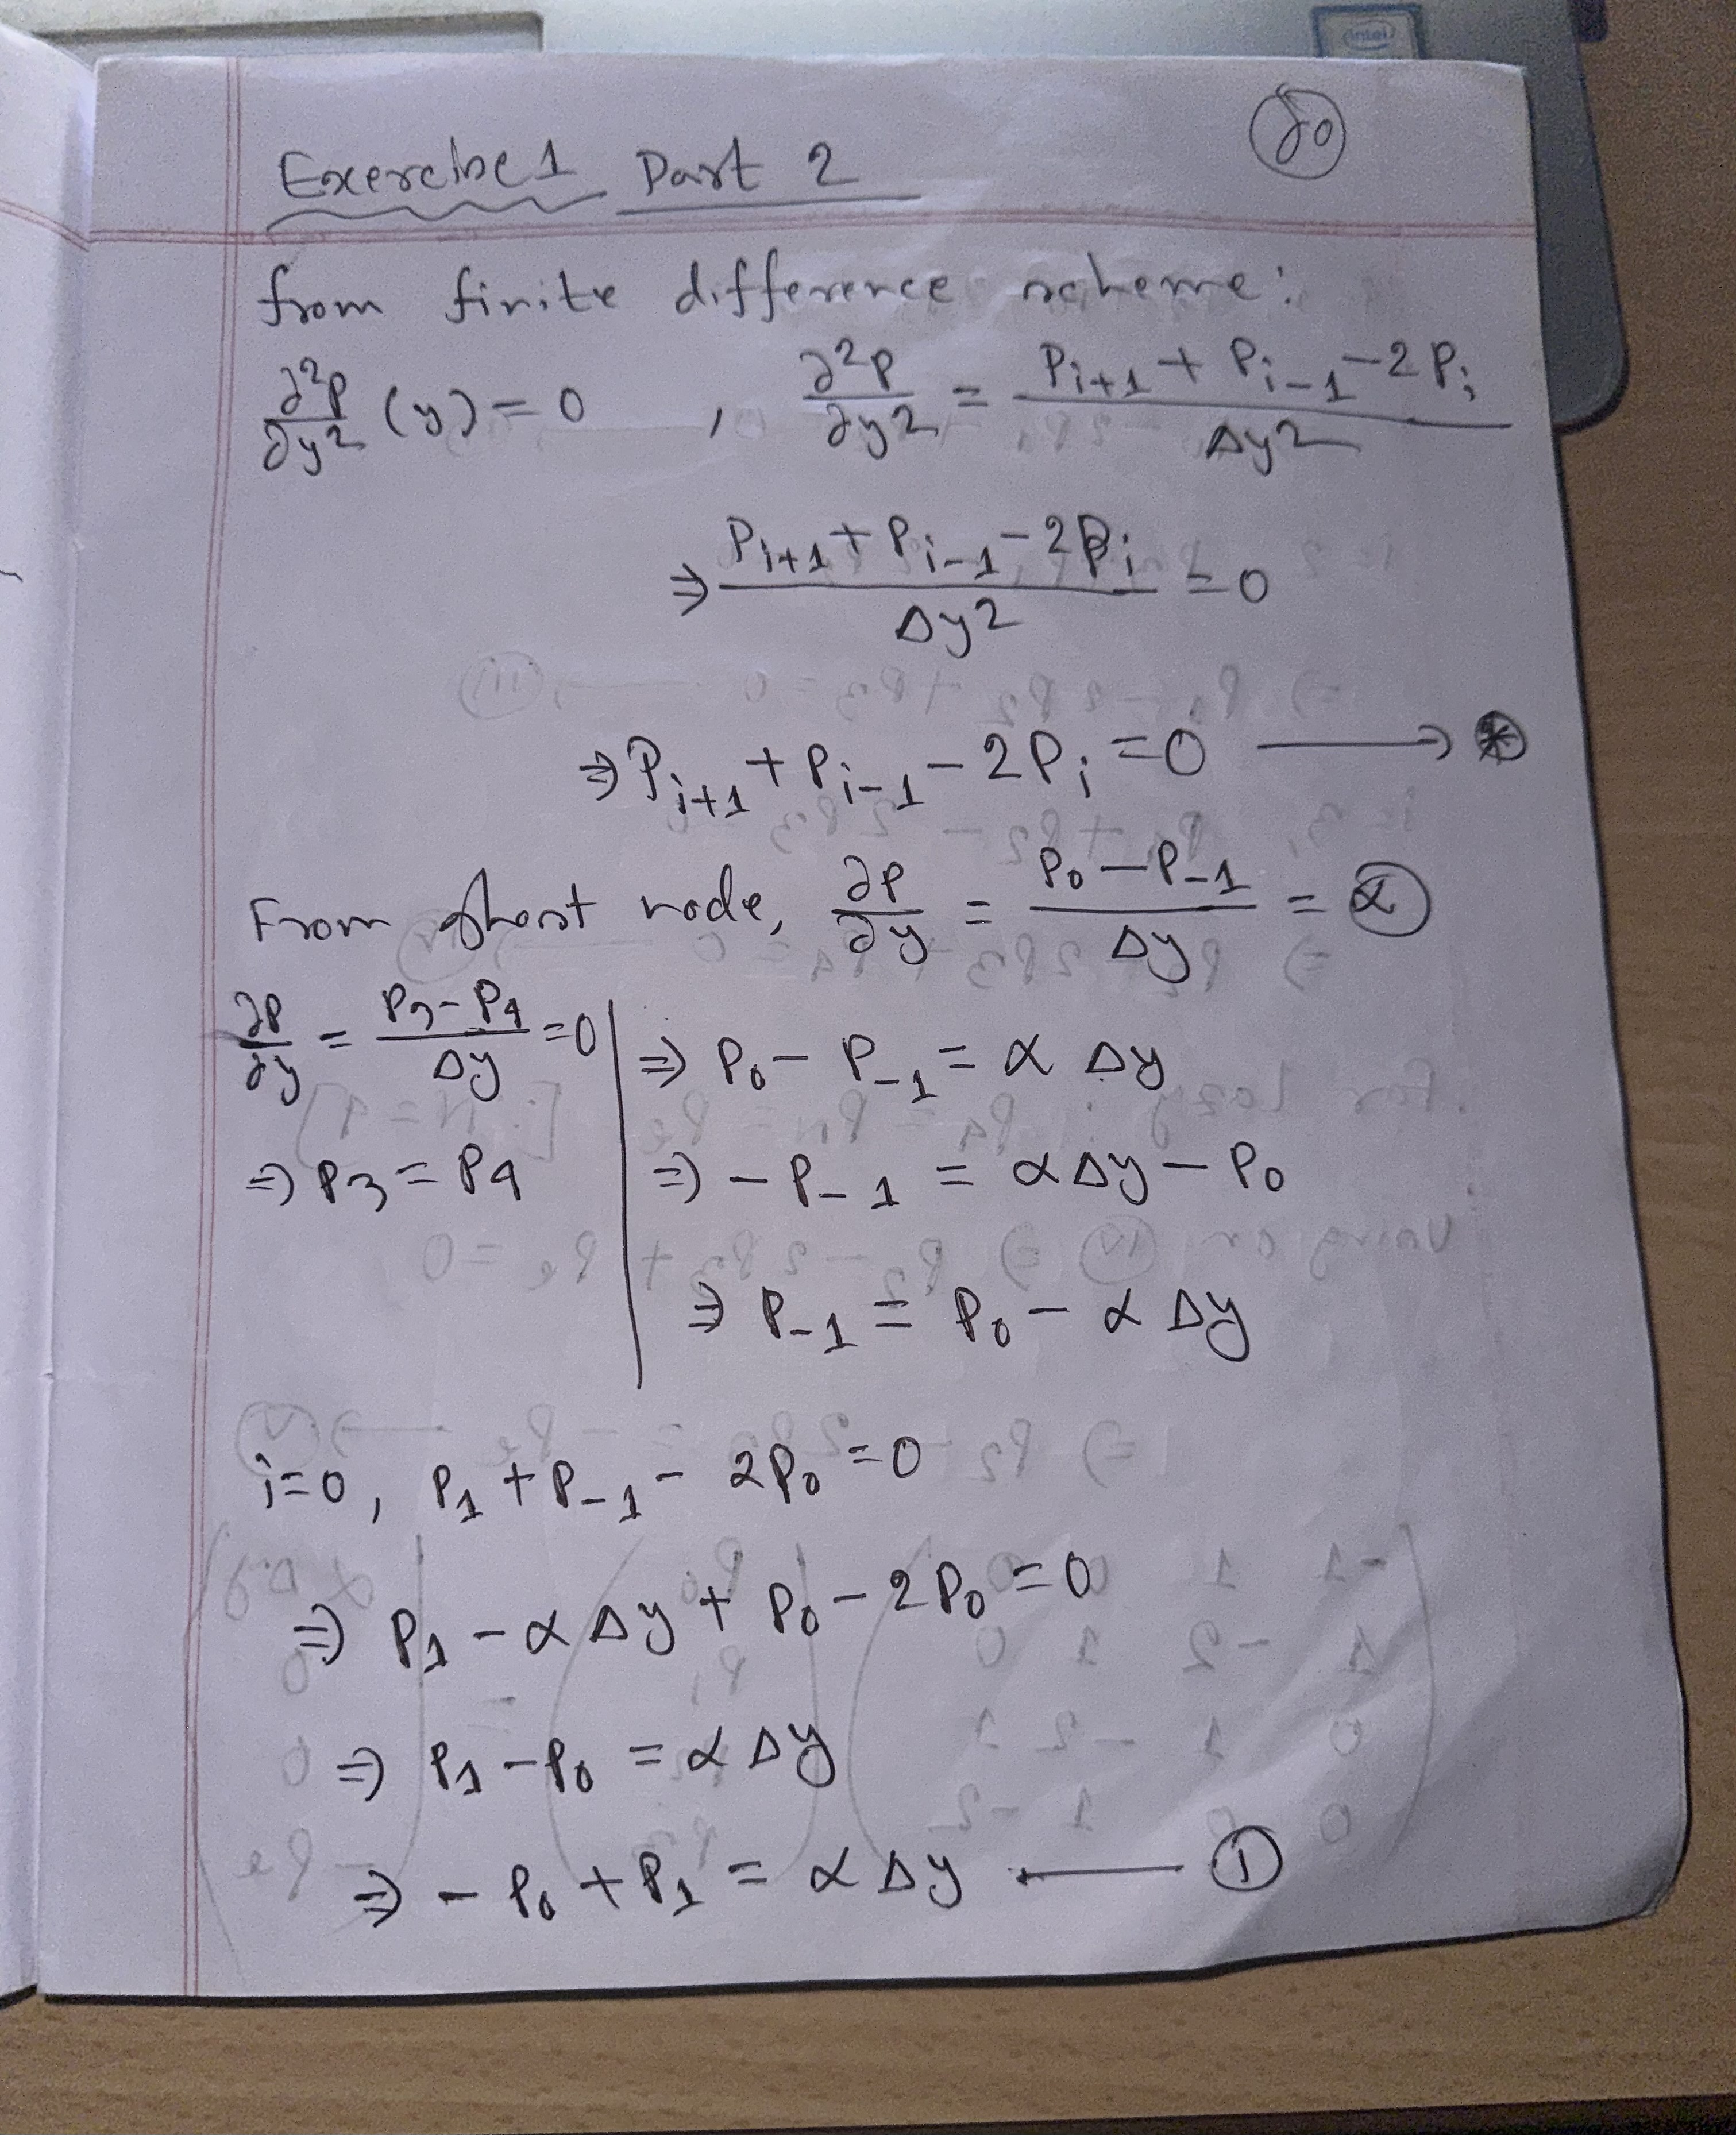 intel
80
Exercise 1 Part 2
from finite difference scheme:
∂²P/∂y² (y) = 0 , ∂²P/∂y² = (P_{i+1} + P_{i-1} - 2P_i)/Δy²
⇒ (P_{i+1} + P_{i-1} - 2P_i)/Δy² = 0
⇒ P_{i+1} + P_{i-1} - 2P_i = 0 → ⊛
From ghost node, ∂P/∂y = (P_0 - P_{-1})/Δy = α
∂P/∂y = (P_3 - P_4)/Δy = 0
⇒ P_3 = P_4
⇒ P_0 - P_{-1} = α Δy
⇒ - P_{-1} = αΔy - P_0
⇒ P_{-1} = P_0 - α Δy
i=0, P_1 + P_{-1} - 2P_0 = 0
⇒ P_1 - α Δy + P_0 - 2P_0 = 0
⇒ P_1 - P_0 = α Δy
⇒ - P_0 + P_1 = α Δy — ①